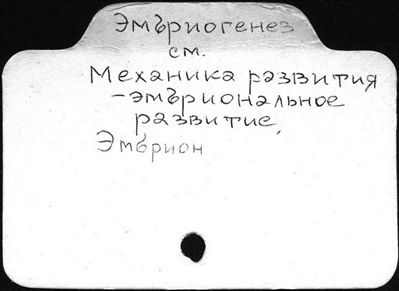 Эмбриогенез
см.
Механика развития
-эмбриональное
развитие,
Эмбрион